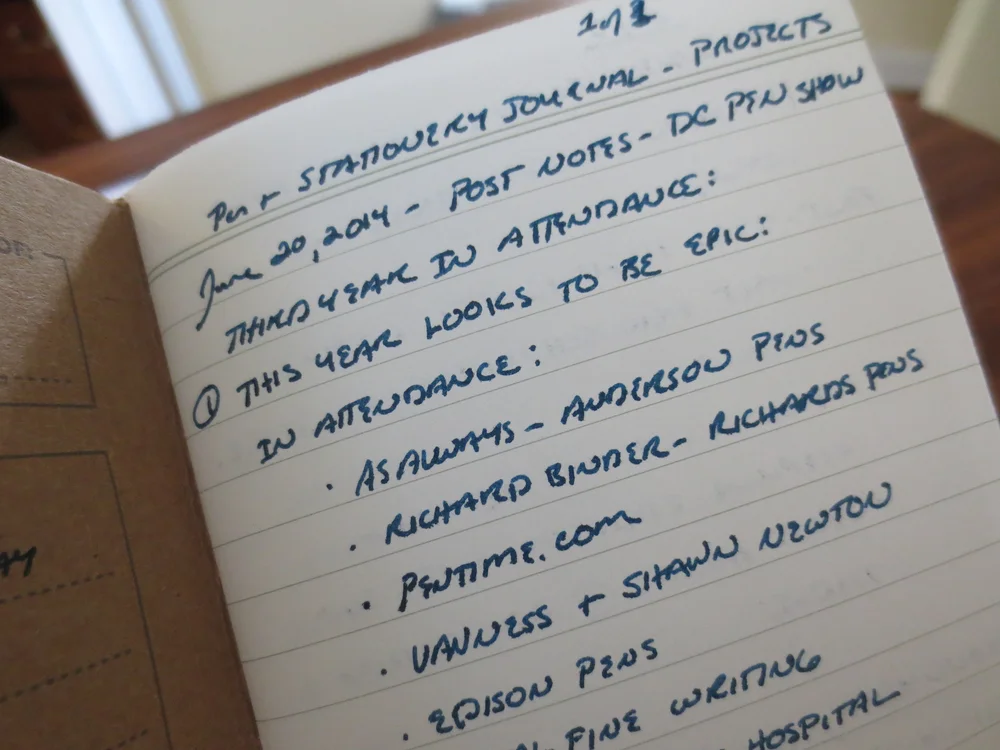 1 of
Pen + STATIONERY JOURNAL - PROJECTS
June 20, 2014 - POST NOTES - DC PEN SHOW
THIRD YEAR IN ATTENDANCE:
① THIS YEAR LOOKS TO BE EPIC:
IN ATTENDANCE:
· AS ALWAYS - ANDERSON PENS
· RICHARD BINDER - RICHARDS PENS
· PENTIME.COM
· VANNESS + SHAWN NEWTON
· EDISON PENS
FINE WRITING
HOSPITAL